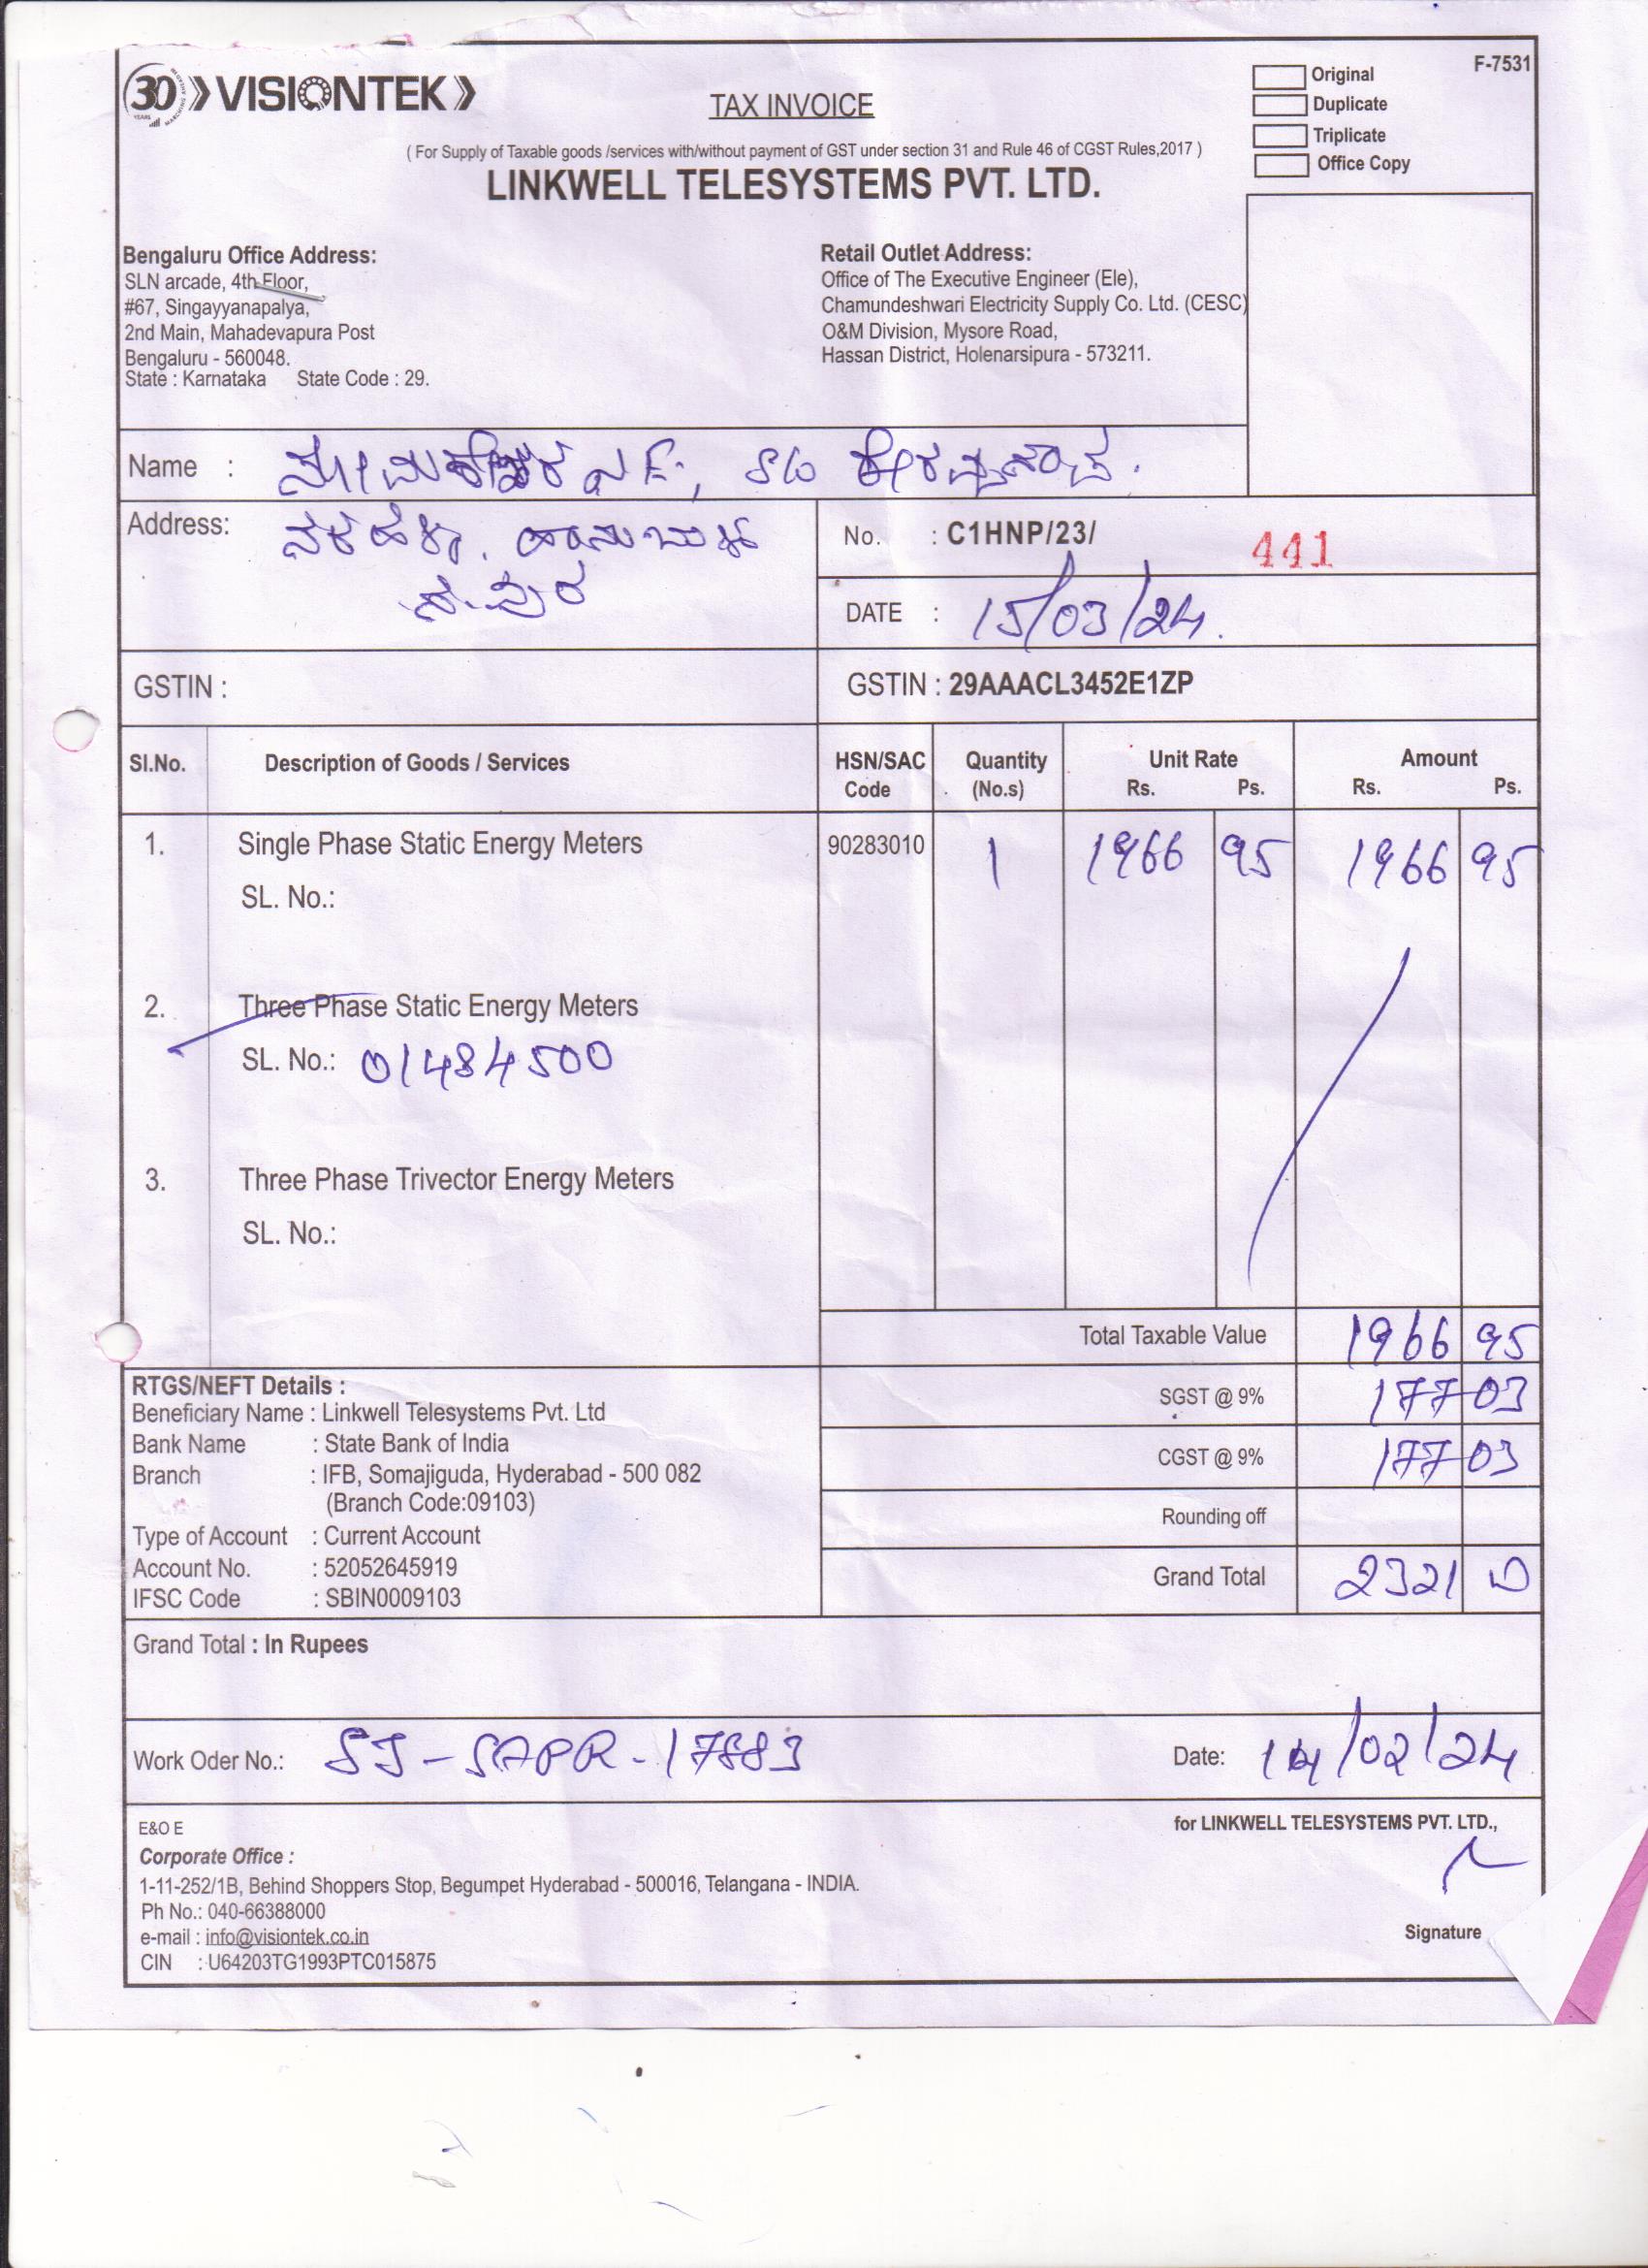 30 YEARS VISIONTEK
TAX INVOICE
F-7531
Original
Duplicate
Triplicate
Office Copy
( For Supply of Taxable goods /services with/without payment of GST under section 31 and Rule 46 of CGST Rules,2017 )
LINKWELL TELESYSTEMS PVT. LTD.
Bengaluru Office Address:
SLN arcade, 4th Floor,
#67, Singayyanapalya,
2nd Main, Mahadevapura Post
Bengaluru - 560048.
State : Karnataka State Code : 29.
Retail Outlet Address:
Office of The Executive Engineer (Ele),
Chamundeshwari Electricity Supply Co. Ltd. (CESC)
O&M Division, Mysore Road,
Hassan District, Holenarsipura - 573211.
Name :
Address:
No. : C1HNP/23/ 441
DATE : 15/03/24.
GSTIN :
GSTIN : 29AAACL3452E1ZP
Sl.No. Description of Goods / Services HSN/SAC Code Quantity (No.s) Unit Rate Rs. Ps. Amount Rs. Ps.
1. Single Phase Static Energy Meters 90283010 1 1966 95 1966 95
SL. No.:
2. Three Phase Static Energy Meters
SL. No.: 01484500
3. Three Phase Trivector Energy Meters
SL. No.:
Total Taxable Value 1966 95
SGST @ 9% 177 03
CGST @ 9% 177 03
Rounding off
Grand Total 2321 00
RTGS/NEFT Details :
Beneficiary Name : Linkwell Telesystems Pvt. Ltd
Bank Name : State Bank of India
Branch : IFB, Somajiguda, Hyderabad - 500 082
(Branch Code:09103)
Type of Account : Current Account
Account No. : 52052645919
IFSC Code : SBIN0009103
Grand Total : In Rupees
Work Oder No.: SJ-SAPR-17883 Date: 14/02/24
E&O E
for LINKWELL TELESYSTEMS PVT. LTD.,
Corporate Office :
1-11-252/1B, Behind Shoppers Stop, Begumpet Hyderabad - 500016, Telangana - INDIA.
Ph No.: 040-66388000
e-mail : info@visiontek.co.in
Signature
CIN : U64203TG1993PTC015875